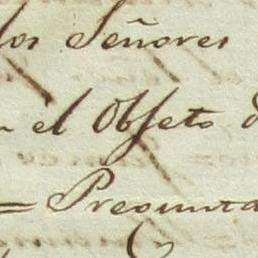 los Señores
el Objeto
= Pregunta